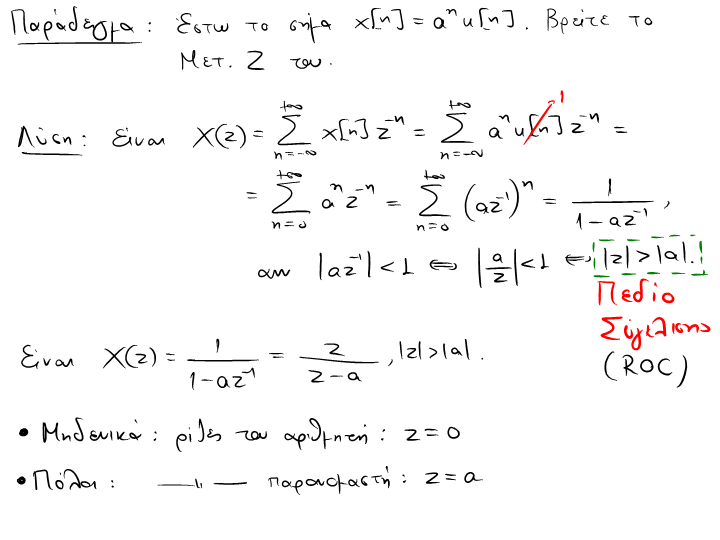 Παράδειγμα: Έστω το σήμα x[n] = aⁿu[n]. Βρείτε το
Μετ. Z του.
Λύση: Είναι X(z) = Σ_{n=-∞}^{+∞} x[n] z⁻ⁿ = Σ_{n=-∞}^{+∞} aⁿu[n] z⁻ⁿ =
1
= Σ_{n=0}^{+∞} aⁿ z⁻ⁿ = Σ_{n=0}^{+∞} (az⁻¹)ⁿ = 1/(1-az⁻¹) ,
αν |az⁻¹| < 1 ⇔ |a/z| < 1 ⇔ |z| > |a|.
Πεδίο
Σύγκλισης
(ROC)
Είναι X(z) = 1/(1-az⁻¹) = z/(z-a) , |z| > |a|.
• Μηδενικά: ρίζες του αριθμητή: z = 0
• Πόλοι: —〃— παρονομαστή: z = a